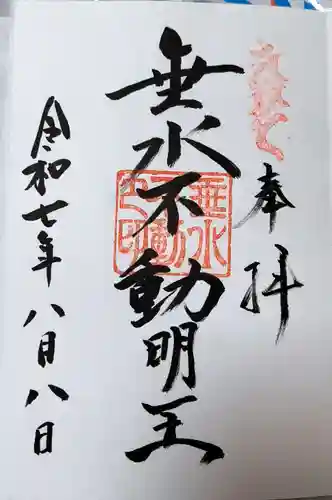 奉拝
垂水不動明王
令和七年八月八日